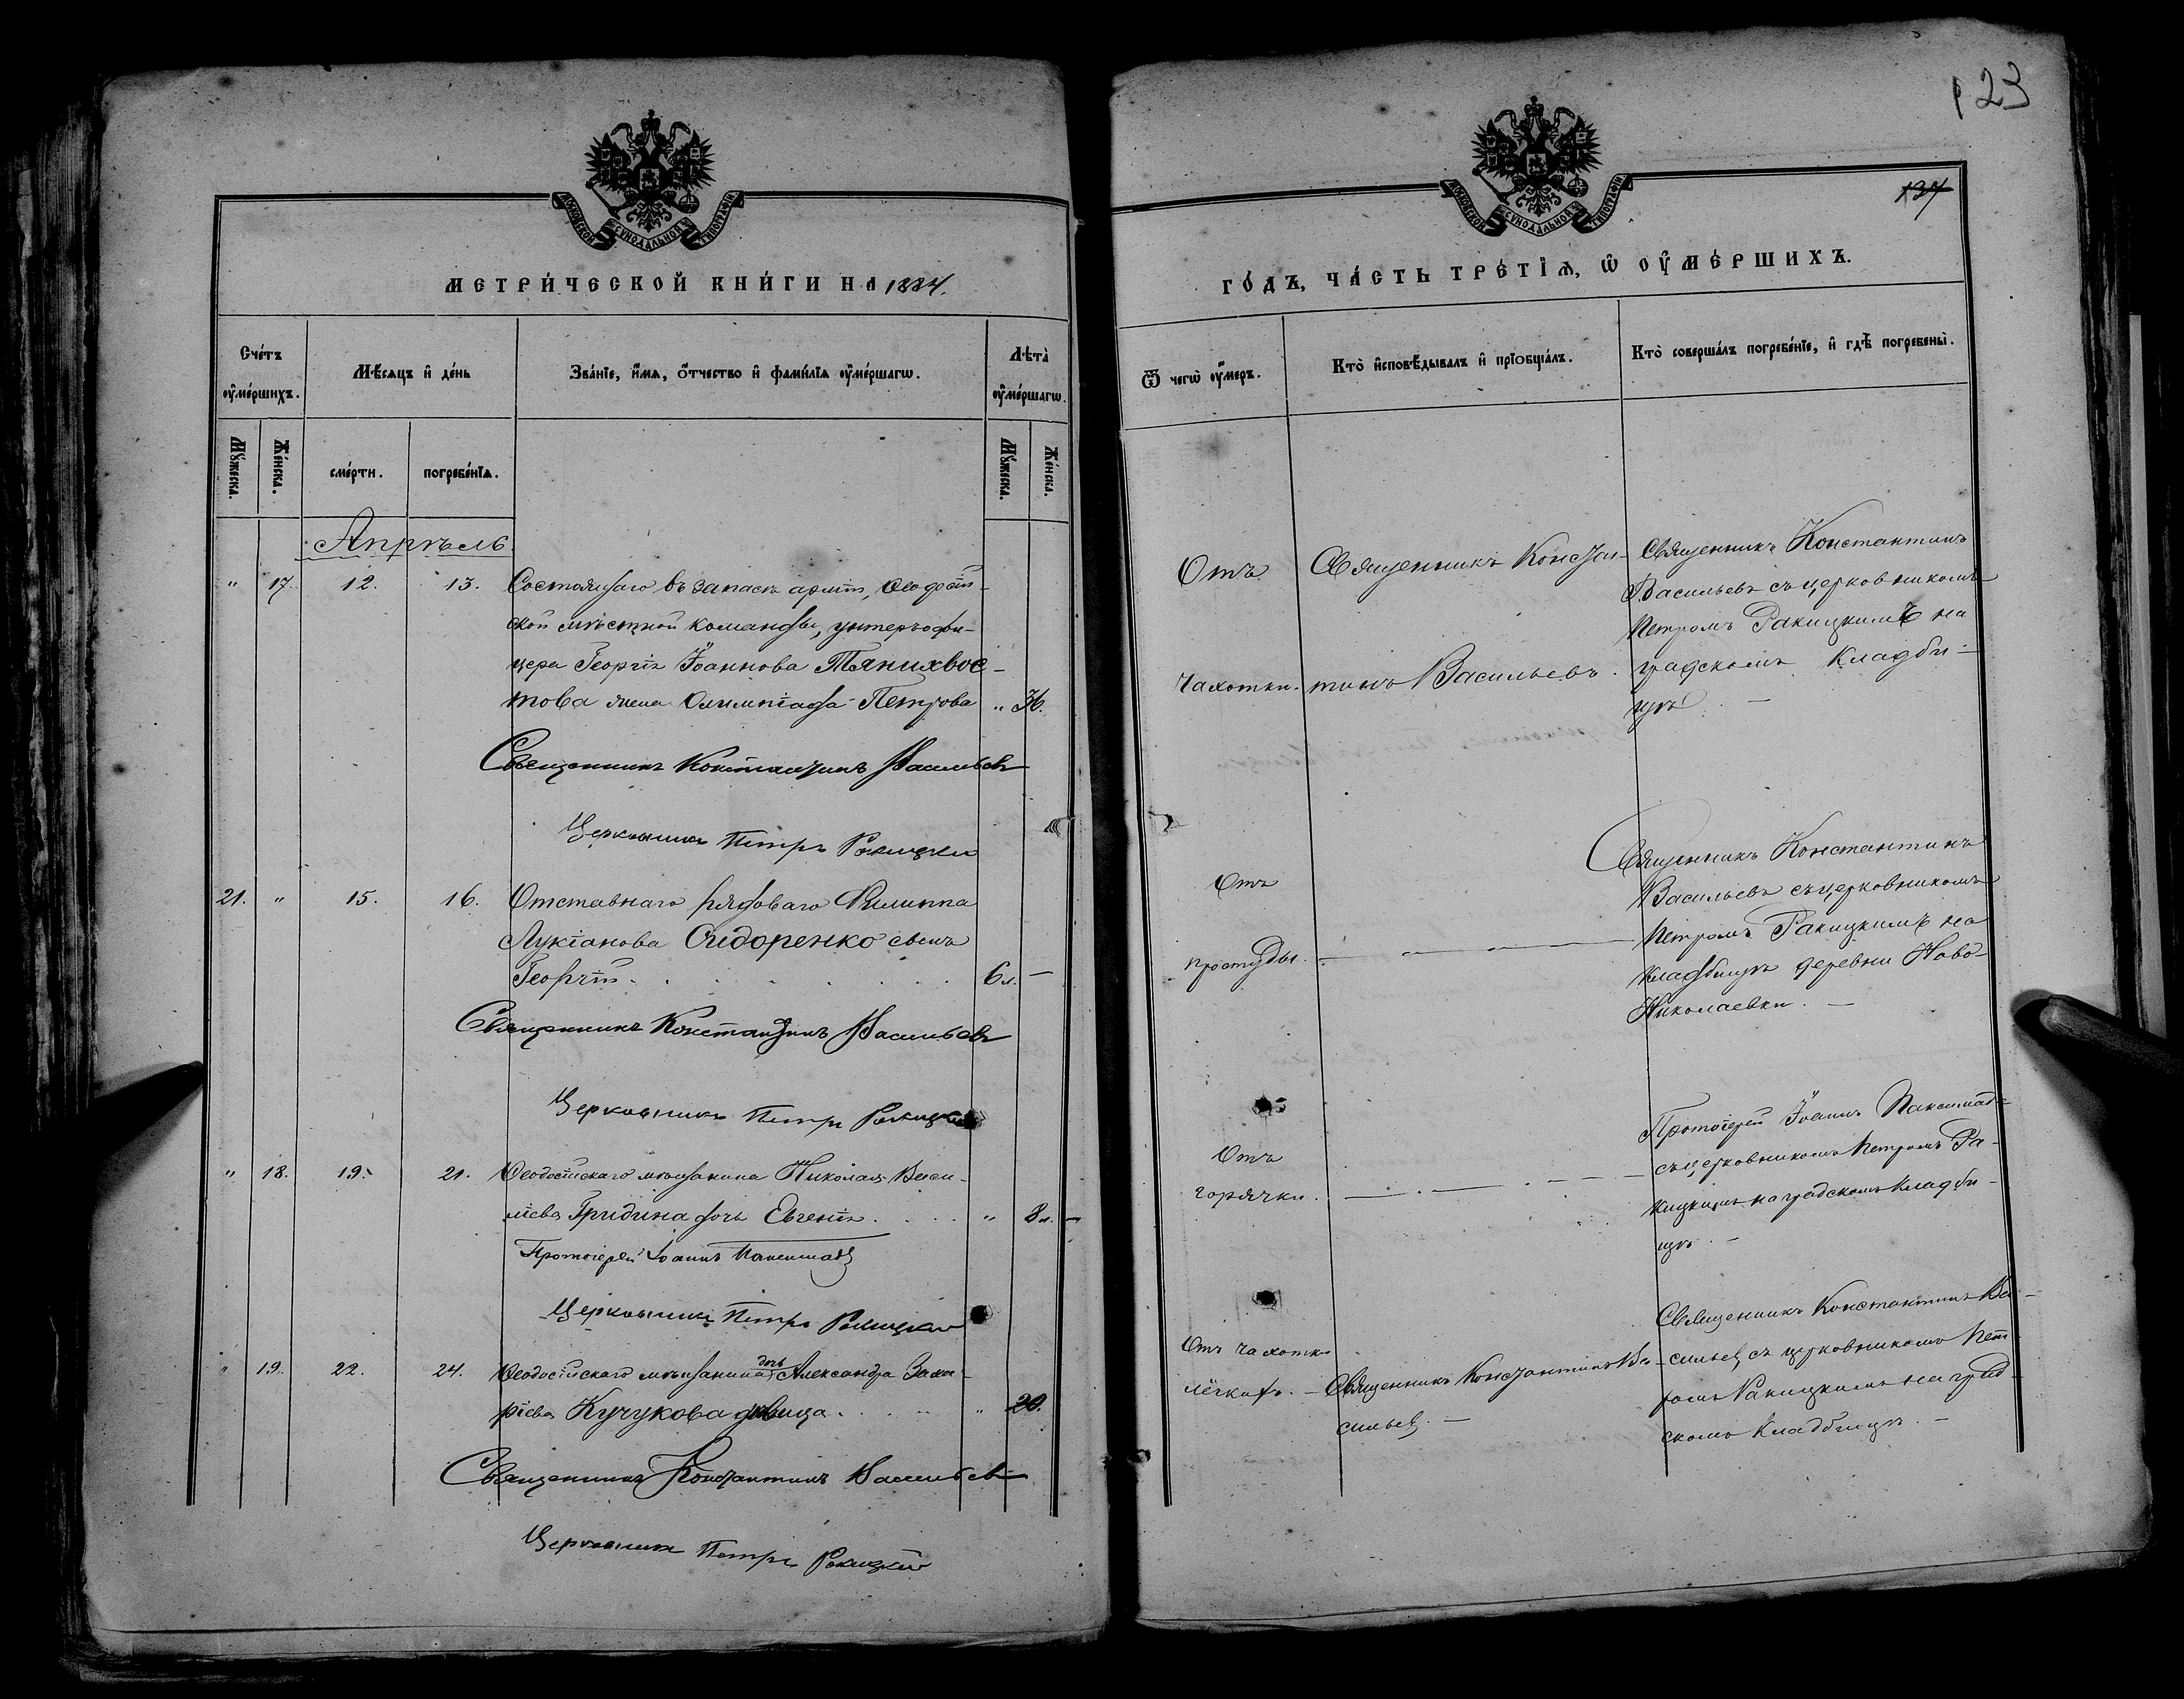 МОСКОВСКОЙ СѴНОДАЛЬНОЙ ТИПОГРАФІИ
МЕТРИ́ЧЕСКОЙ КНИ́ГИ НА 1884.
Сче́тъ оу҆ме́ршихъ.
Мѣ́сяцъ и҆ де́нь
Зва́нїе, и҆́мѧ, ѻ҆́тчество и҆ фами́лїѧ оу҆ме́ршагѡ.
Лѣта̀ оу҆ме́ршагѡ.
Му́жеска.
Же́нска.
сме́рти.
погребе́нїѧ.
Му́жеска.
Же́нска.
Апрѣль.
" 17. 12. 13. Состоящаго въ запасѣ арміи, Ѳеодосій-
ской мѣстной команды, унтеръ-офи-
цера Георгія Іоаннова Тянихвос-
това жена Олимпіада Петрова " 36.
Священникъ Константинъ Васильевъ
Церковникъ Петръ Ракицкій
21. " 15. 16. Отставнаго рядоваго Филиппа
Лукіанова Сидоренко сынъ
Георгій. 6 л. —
Священникъ Константинъ Васильевъ
Церковникъ Петръ Ракицкій
" 18. 19. 21. Ѳеодосійскаго мѣщанина Николая Васи-
ліева Гридина дочь Евгенія. " 8 л. —
Протоіерей Іоаннъ
Церковникъ Петръ Ракицкій
дочь
" 19. 22. 24. Ѳеодосійскаго мѣщанина Александра Заха-
ріева Кучукова дѣвица. " 20.
Священникъ Константинъ Васильевъ
Церковникъ Петръ Ракицкій
123
137
МОСКОВСКОЙ СѴНОДАЛЬНОЙ ТИПОГРАФІИ
ГО́ДЪ, ЧА́СТЬ ТРЕ́ТЇѦ, Ѡ҆ ОУ҆МЕ́РШИХЪ.
Ѿ чегѡ̀ оу҆́меръ.
Кто̀ и҆сповѣ́дывалъ и҆ прїѻбща́лъ.
Кто̀ соверша́лъ погребе́нїе, и҆ гдѣ̀ погребены̀.
Отъ
чахотки.
Священникъ Констан-
тинъ Васильевъ.
Священникъ Константинъ
Васильевъ съ церковникомъ
Петромъ Ракицкимъ на
градскомъ кладби-
щѣ. —
Отъ
простуды.
Священникъ Константинъ
Васильевъ съ церковникомъ
Петромъ Ракицкимъ на
кладбищѣ деревни Ново-
Николаевки. —
Отъ
горячки.
Протоіерей Іоаннъ
съ церковникомъ Петромъ Ра-
кицкимъ на градскомъ кладби-
щѣ. —
Отъ чахотки
лёгкихъ. —
Священникъ Константинъ Ва-
сильевъ. —
Священникъ Константинъ Ва-
сильевъ съ церковникомъ Пет-
ромъ Ракицкимъ на град-
скомъ кладбищѣ. —